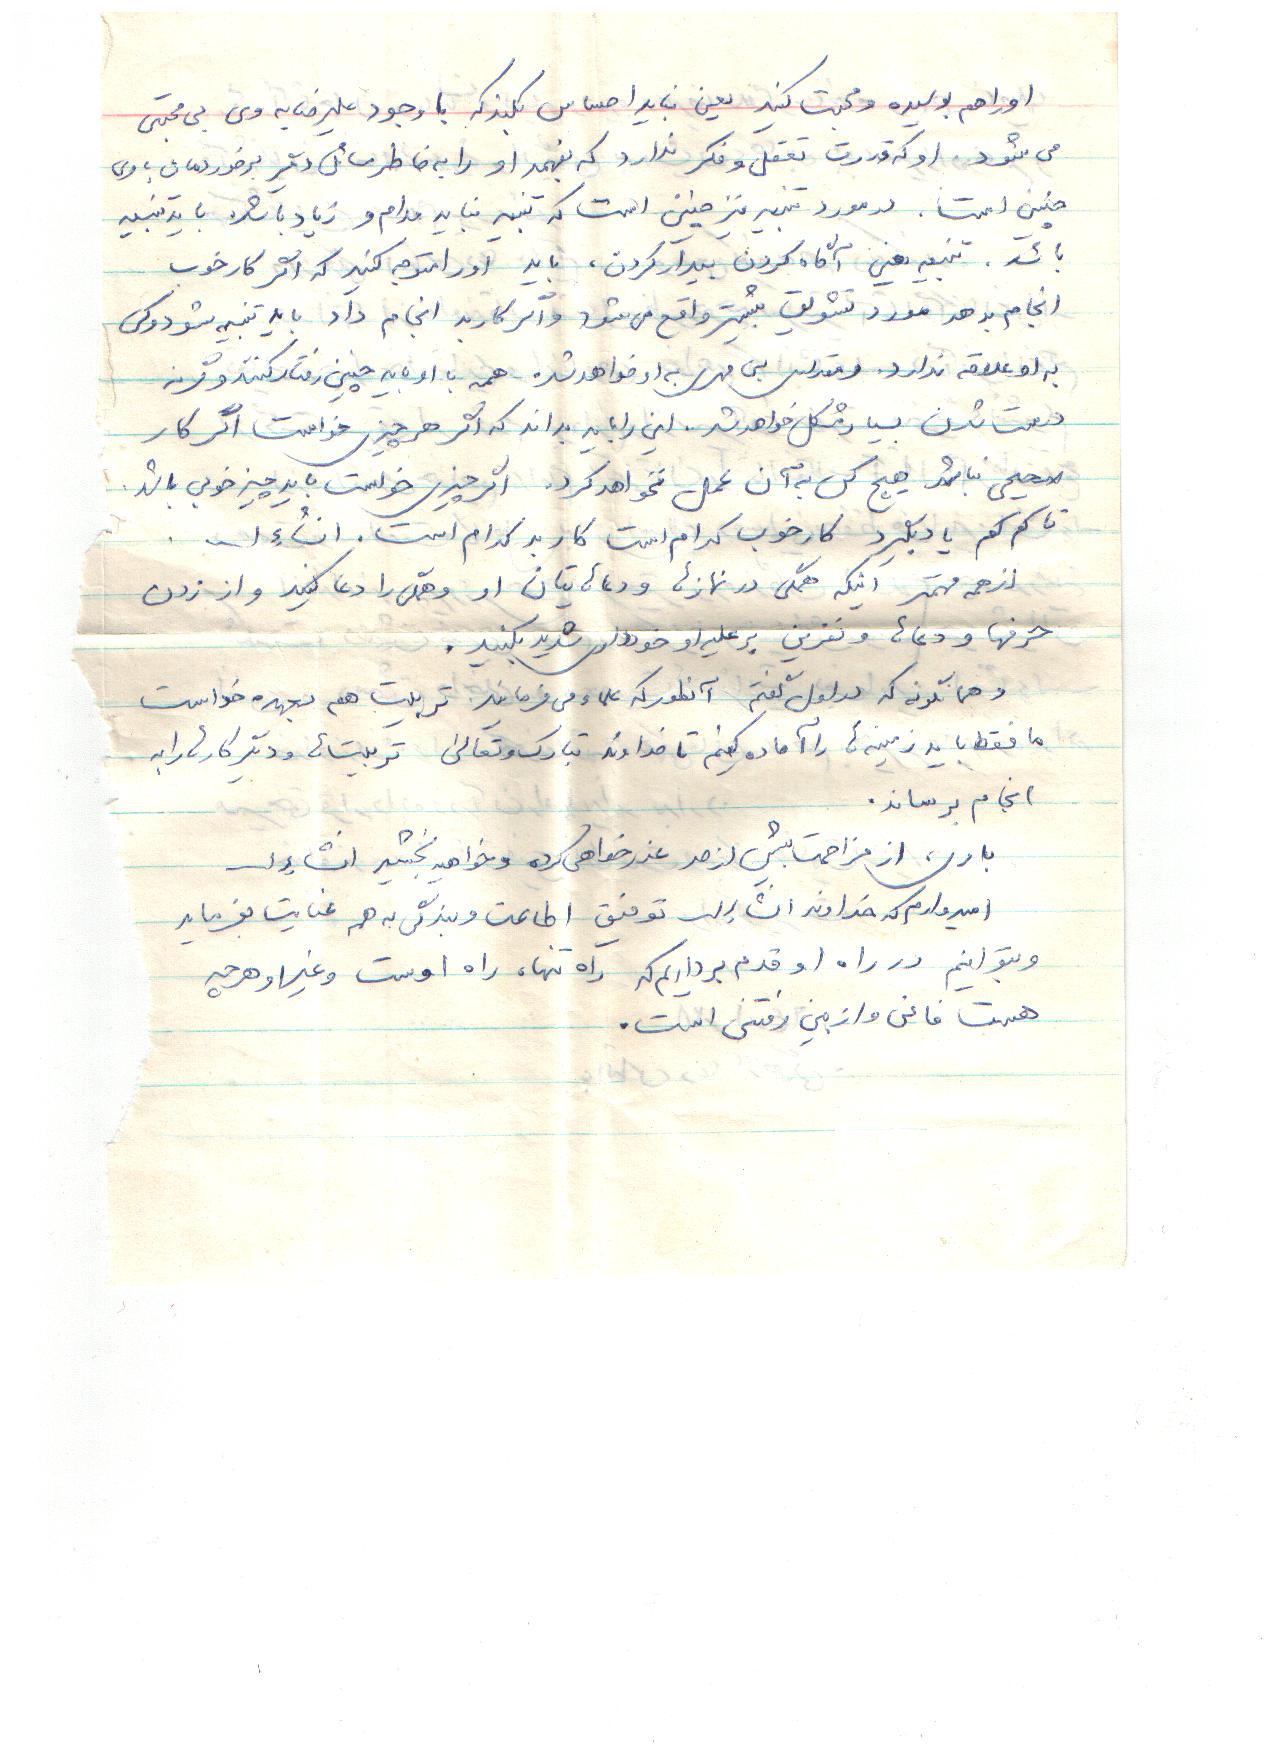 او را هم بوسیده و محبت کنید یعنی نباید احساس بکند که با وجود علیرضا به وی بی محبتی
می شود. او که قدرت تعقل و فکر ندارد که بفهمد او را به خاطر مسائل دیگر برخوردهای با وی
چنین است. در مورد تنبیه نیز چنین است که تنبیه نباید مدام و زیاد باشد. باید تنبیه
باشد. تنبیه یعنی آگاه کردن بیدار کردن، باید او را متوجه کنید که اگر کار خوب
انجام بدهد مورد تشویق بیشتر واقع می شود و اگر کار بد انجام داد باید تنبیه شود و کسی
به او علاقه ندارد. و بی مهری به او خواهد شد. همه با او باید چنین رفتار کنند وگرنه
درست شدن بسیار مشکل خواهد شد. این را باید بداند که اگر هر چیزی خواست اگر کار
صحیحی نباشد هیچ کس به آن عمل نخواهد کرد. اگر چیزی خواست باید چیز خوبی باشد.
تا کم کم یاد بگیرد کار خوب کدام است کار بد کدام است. انشاءالله.
از همه مهمتر اینکه همگی در نمازها و دعاهایتان او و همگی را دعا کنید و از زدن
حرفها و دعاها و نفرین بر علیه او خودداری شدید بکنید.
و همانگونه که در اول گفتم آنطور که علماء می فرمایند تربیت هم بعهده خداست
ما فقط باید زمینه ها را آماده کنیم تا خداوند تبارک و تعالی تربیت ها و دیگر کارها را به
انجام برساند.
باری، از مزاحمت بیش از حد عذرخواهی کرده و خواهید بخشید انشاءالله
امیدوارم که خداوند انشاءالله توفیق اطاعت و بندگی به همه عنایت بفرماید
و بتوانیم در راه او قدم برداریم که راه تنها، راه اوست و غیر او هر چه
هست فانی و از بین رفتنی است.